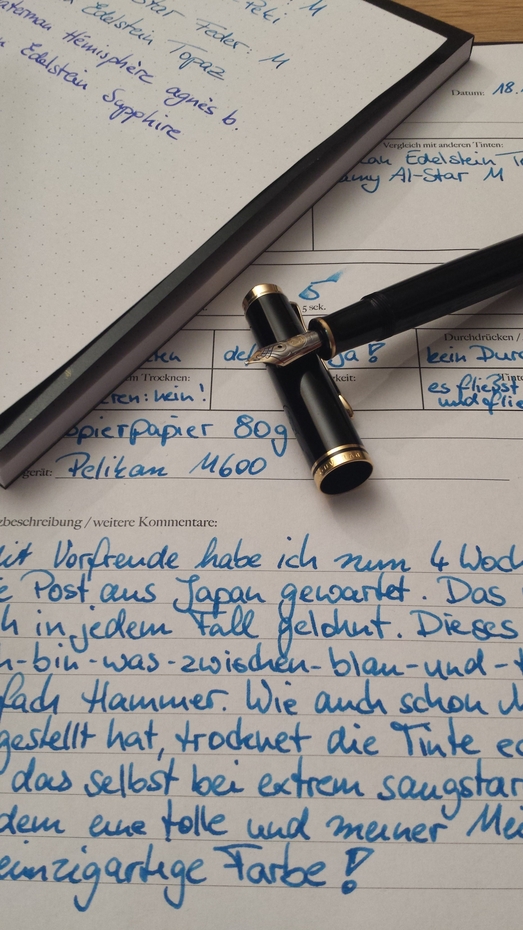 Peki M
Star Feder: M
Edelstein Topaz
Waterman Hémisphère agnès b.
Edelstein Sapphire
Datum: 18.
Vergleich mit anderen Tinten:
kan Edelstein T
amy Al-Star M
5
5 sek.
Durchdrücken /
ken
ja!
kein Durc
m Trocknen:
keit:
Tint
eren: nein!
es fließt
und flie
opierpapier 80g
gerät: Pelikan M600
zbeschreibung / weitere Kommentare:
it Vorfreude habe ich nun 4 Woch
e Post aus Japan gewartet. Das
h in jedem Fall gelohnt. Dieses
h-bin-was-zwischen-blau-und-
fach Hammer. Wie auch schon
gestellt hat, trocknet die Tinte
das selbst bei extrem saugstar
dem eine tolle und meiner Me
einzigartige Farbe!